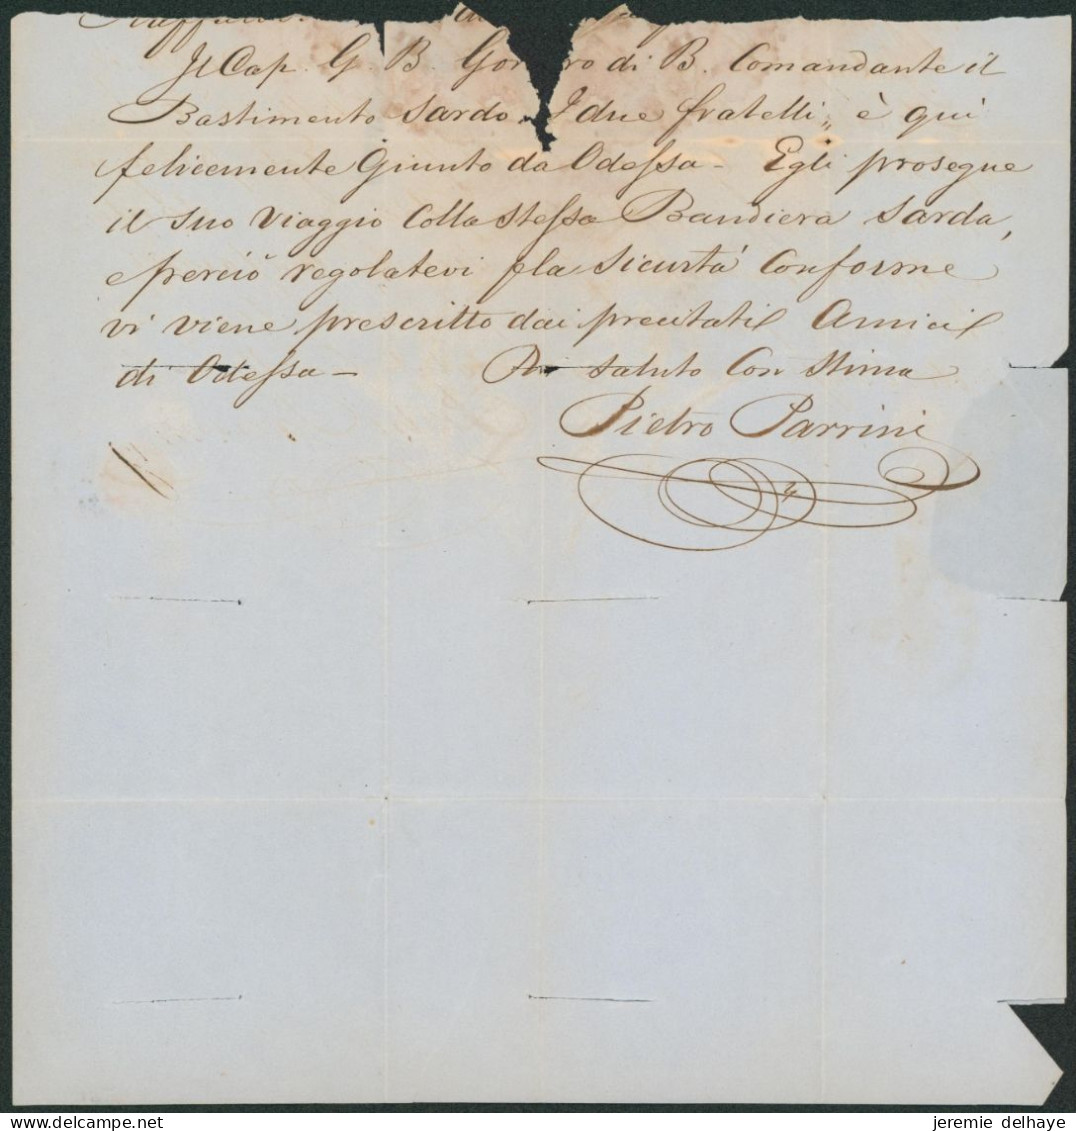 Il Cap. G. B. di B. Comandante il
Bastimento Sardo I due fratelli„ è qui
felicemente Giunto da Odessa – Egli prosegue
il suo Viaggio Colla stessa Bandiera Sarda,
e perciò regolatevi p la Sicurtà Conforme
vi viene prescritto dai precitati Amici
di Odessa – saluto Con Stima
Pietro Parrini
jeremie delhaye